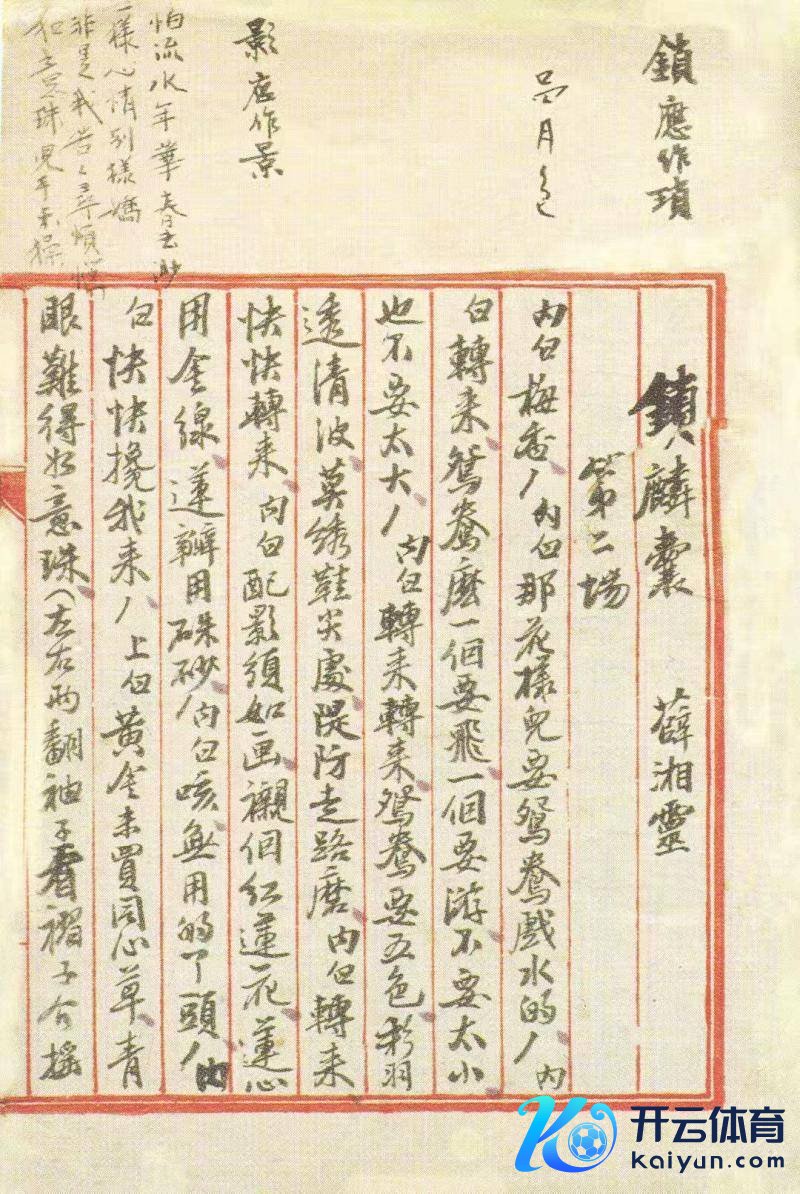 鎖應作瑣
影應作景
怕流水年華春去渺
一樣心情別樣嬌
非是我苦苦尋煩惱
如意珠兒手未操
鎖麟囊 薛湘靈
第二場
内白梅香、内白那花樣兒要鴛鴦戲水的、内
白轉来鴛鴦麽一個要飛一個要游不要太小
也不要太大、内白轉来轉来鴛鴦要五色彩羽
透清波莫綉鞋尖處隄防走路磨内白轉来
快快轉来内白配影須如画襯個紅蓮花蓮心
用金線蓮瓣用硃砂、内白咳無用的了頭、内
白快快攙我来、上白黄金未買同心草青
眼難得如意珠(左右两翻袖子看褶子介搖
开云体育
kaiyun.com